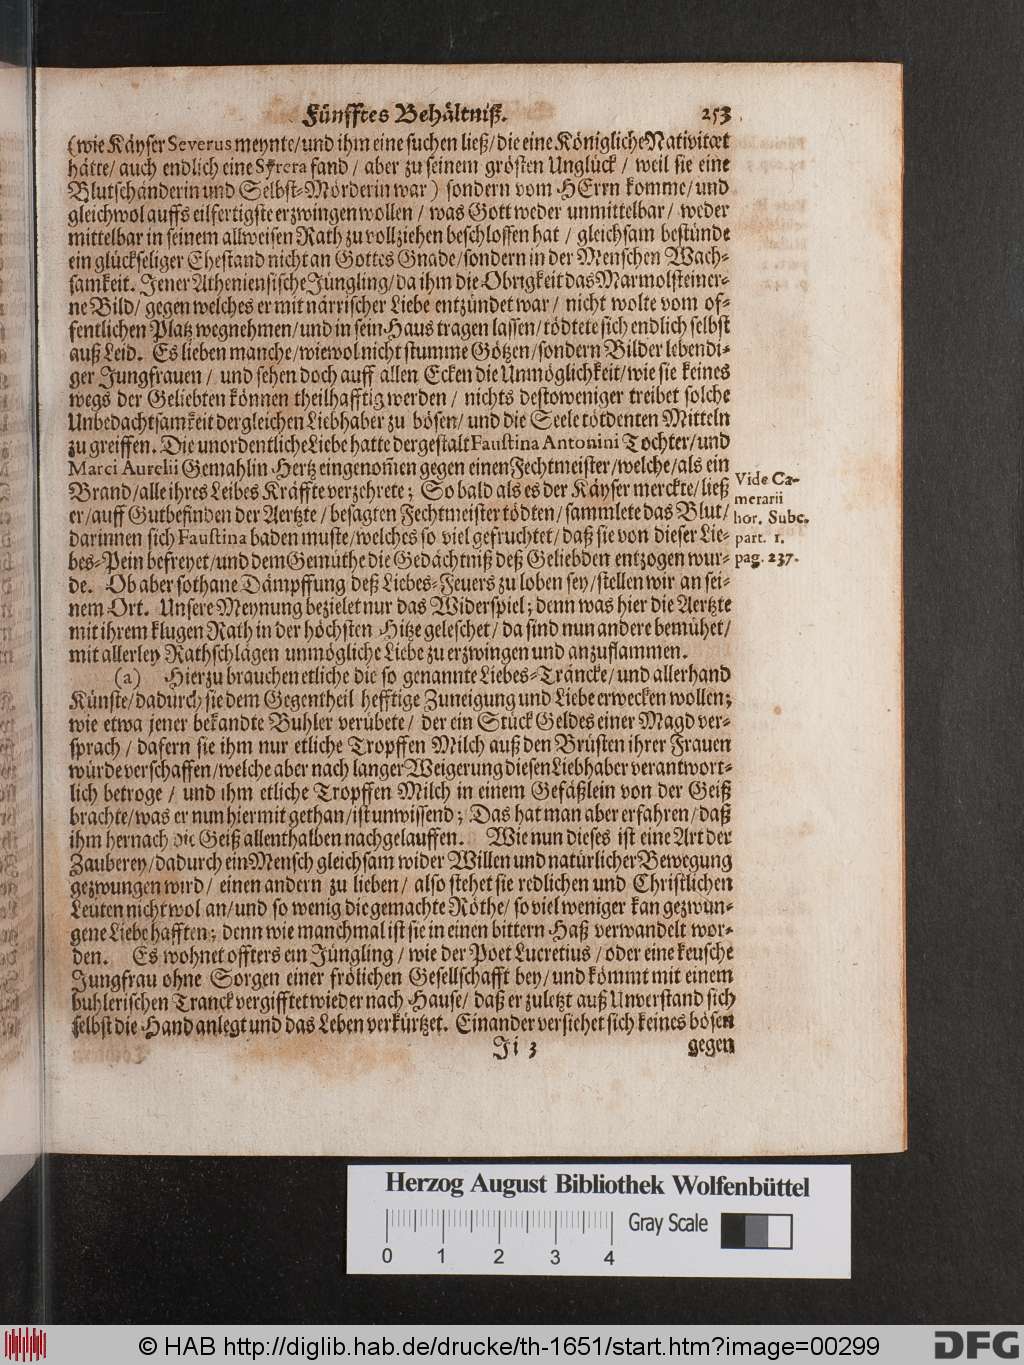 Fünfftes Behältniß. 253
(wie Käyser Severus meynte/und ihm eine suchen ließ/die eine Königliche Nativitæt
hätte/ auch endlich eine fand / aber zu seinem grösten Unglück / weil sie eine
Blutschänderin und Selbst-Mörderin war) sondern vom HErrn komme/und
gleichwol auffs eilfertigste erzwingen wollen / was Gott weder unmittelbar / weder
mittelbar in seinem allweisen Rath zu vollziehen beschlossen hat / gleichsam bestünde
ein glückseliger Ehestand nicht an Gottes Gnade/sondern in der Menschen Wach-
samkeit. Jener Atheniensische Jüngling/da ihm die Obrigkeit das Marmolsteiner-
ne Bild/ gegen welches er mit närrischer Liebe entzündet war / nicht wolte vom of-
fentlichen Platz wegnehmen/und in sein Haus tragen lassen/tödtete sich endlich selbst
auß Leid. Es lieben manche/wiewol nicht stumme Götzen/sondern Bilder lebendi-
ger Jungfrauen / und sehen doch auff allen Ecken die Unmöglichkeit/wie sie keines
wegs der Geliebten können theilhafftig werden / nichts destoweniger treibet solche
Unbedachtsamkeit dergleichen Liebhaber zu bösen/und die Seele tötdenten Mitteln
zu greiffen. Die unordentliche Liebe hatte dergestalt Faustina Antonini Tochter/und
Marci Aurelii Gemahlin Hertz eingenom̃en gegen einen Fechtmeister/welche/als ein
Brand/alle ihres Leibes Kräffte verzehrete; So bald als es der Käyser merckte/ließ
er/auff Gutbefinden der Aertzte / besagten Fechtmeister tödten/sammlete das Blut/
darinnen sich Faustina baden muste/welches so viel gefruchtet/daß sie von dieser Lie-
bes-Pein befreyet/und dem Gemüthe die Gedächtniß deß Geliebden entzogen wur-
de. Ob aber sothane Dämpffung deß Liebes-Feuers zu loben sey/stellen wir an sei-
nem Ort. Unsere Meynung bezielet nur das Widerspiel; denn was hier die Aertzte
mit ihrem klugen Rath in der höchsten Hitze geleschet/da sind nun andere bemühet/
mit allerley Rathschlägen unmögliche Liebe zu erzwingen und anzuflammen.
Vide Ca-
merarii
hor. Subc.
part. 1.
pag. 237.
(a) Hierzu brauchen etliche die so genannte Liebes-Träncke/und allerhand
Künste/dadurch sie dem Gegentheil hefftige Zuneigung und Liebe erwecken wollen;
wie etwa jener bekandte Buhler verübete / der ein Stück Geldes einer Magd ver-
sprach / dafern sie ihm nur etliche Tropffen Milch auß den Brüsten ihrer Frauen
würde verschaffen/welche aber nach langer Weigerung diesen Liebhaber verantwort-
lich betroge / und ihm etliche Tropffen Milch in einem Gefäßlein von der Geiß
brachte/was er nun hiermit gethan/ist unwissend; Das hat man aber erfahren/daß
ihm hernach die Geiß allenthalben nachgelauffen. Wie nun dieses ist eine Art der
Zauberey/dadurch ein Mensch gleichsam wider Willen und natürlicher Bewegung
gezwungen wird/ einen andern zu lieben/ also stehet sie redlichen und Christlichen
Leuten nicht wol an/und so wenig die gemachte Röthe/so viel weniger kan gezwun-
gene Liebe hafften; denn wie manchmal ist sie in einen bittern Haß verwandelt wor-
den. Es wohnet offters ein Jüngling/wie der Poet Lucretius/oder eine keusche
Jungfrau ohne Sorgen einer frölichen Gesellschafft bey/und kömmt mit einem
buhlerischen Tranck vergifftet wieder nach Hause/ daß er zuletzt auß Unverstand sich
selbst die Hand anlegt und das Leben verkürtzet. Einander versiehet sich keines bösen
Ii 3 gegen
Herzog August Bibliothek Wolfenbüttel
Gray Scale
0 1 2 3 4
© HAB http://diglib.hab.de/drucke/th-1651/start.htm?image=00299
DFG